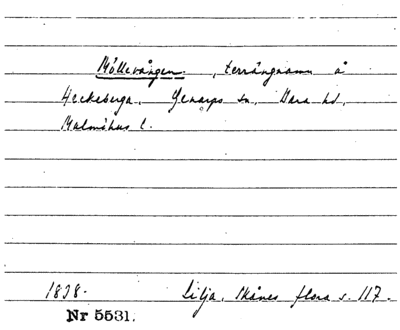 Möllevången, terrängnamn å
Heckeberga, Genarps sn, Bara hd,
Malmöhus l.
1838. Lilja, Skånes flora s. 117.
Nr 5531.